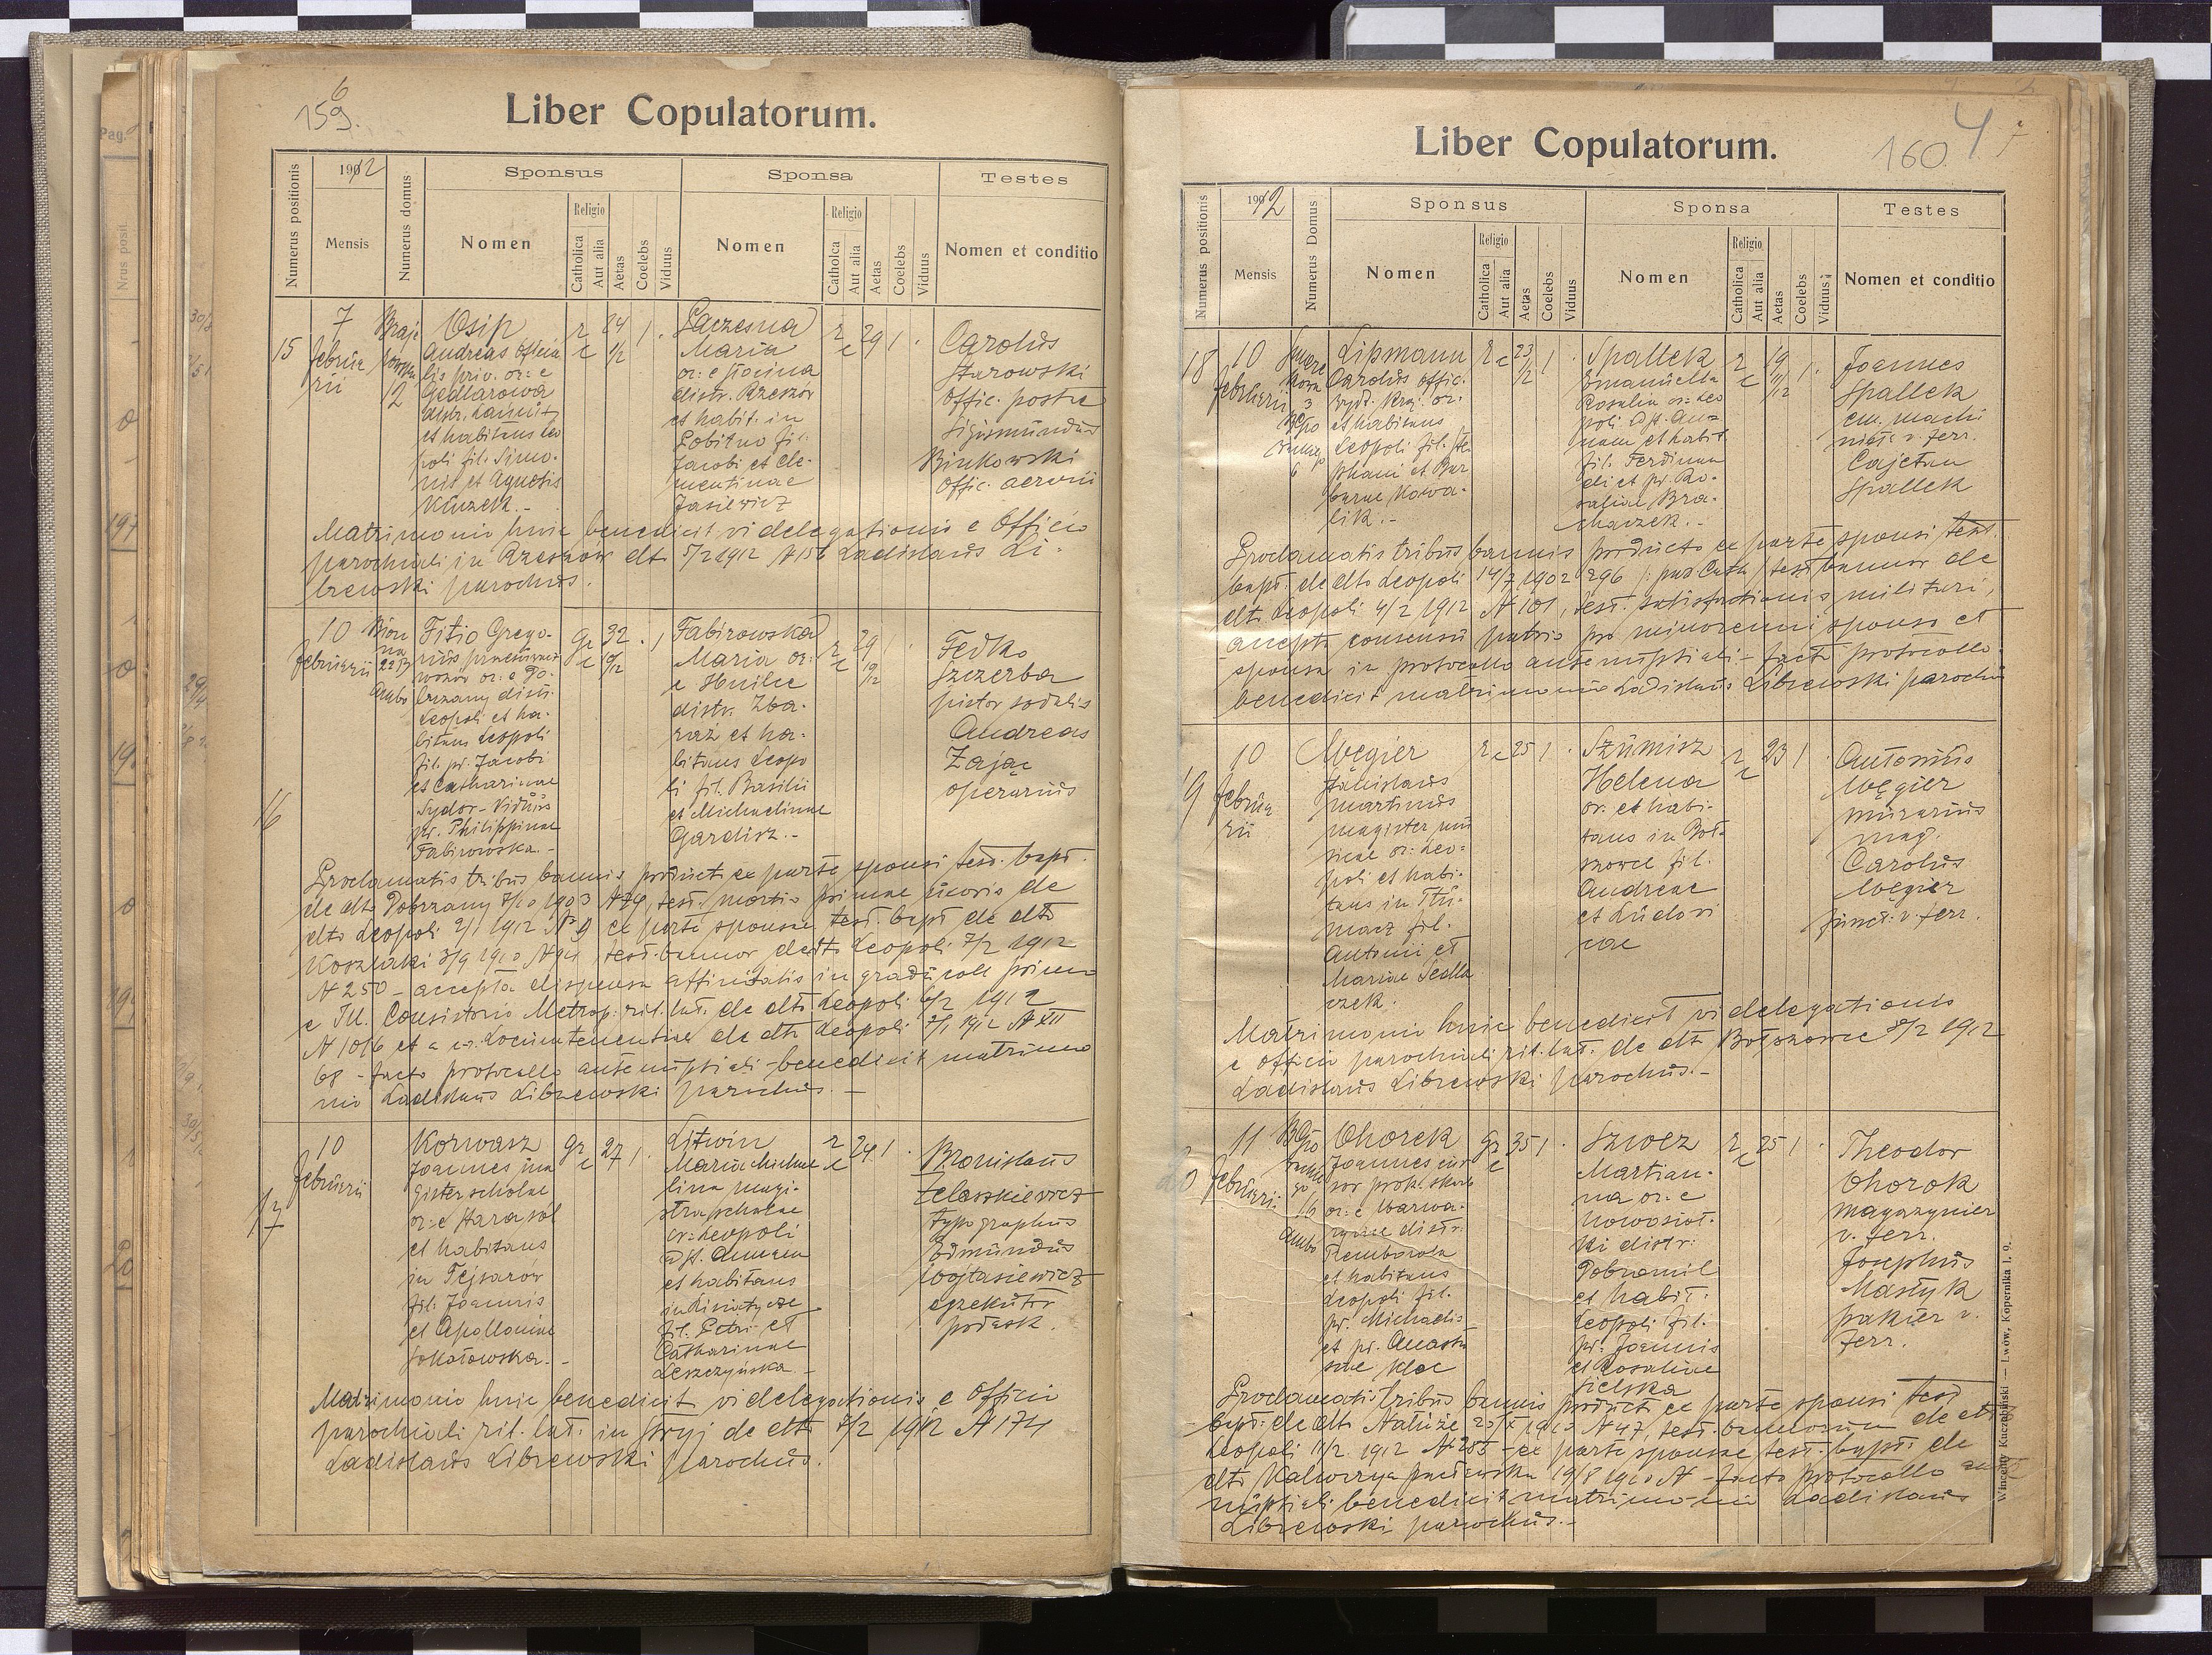 159.
6
Liber Copulatorum.
Numerus positionis
1912
Mensis
Numerus domus
Sponsus
Nomen
Religio
Catholica
Aut alia
Aetas
Coelebs
Viduus
Sponsa
Nomen
Religio
Catholica
Aut alia
Aetas
Coelebs
Viduus
Testes
Nomen et conditio
15
7
februa
rii
12
Osip
Andreas officia
lis priv. or: e
Gedlarowa
distr. Łańcut
et habitans Leo
poli fil. Simo-
nis et Agnetis
r c
24
1/2
1
Maria
or: e Słocina
distr. Rzeszów
et habit. in
Łobitno fil:
Jacobi et Cle-
mentinae
Jasiewicz
r c
29
1
Carolus
Starowski
offic. postae
Sigismundus
Binkowski
offic. aerarii
Matrimonio huic benedicit vi delegationis e Officio
parochiali in Rzeszów dto 5/2 1912 N 156 Ladislaus Li-
brewski parochus.
16
10
februarii
22 B
Ambo
Fitio Grego-
rius
or: e Do-
brzany distr.
Leopoli et ha-
bitans Leopoli
fil. pr. Jacobi
et Catharinae
Sydor - Viduus
pr. Philippinae
Fabirowska. -
gr c
32
1
Fabirowska
Maria or:
e Hnilce
distr. Zba-
raż et ha-
bitans Leopo
li fil. Basilii
et Michaelinae
Gardisz. -
r c
29
Fedko
Szczerba
pictor sodalis
Andreas
Zając
operarius
Proclamatis tribus bannis producto ex parte sponsi test. bapt.
de dto Dobrzany 7/10 1903 N 79, test. mortis primae uxoris de
dto Leopoli 2/1 1912 N 9 ex parte sponsae test. bapt. de dto
Koszlaki 3/9 1910 N 94, test. bannor de dto Leopoli 7/2 1912
N 250 - accepta dispensa affinitatis in gradu coll primo
e Ill. Consistorio Metrop. rit. lat. de dto Leopoli 6/2 1912
N 1016 et a c.r. Locumtenentiae de dto Leopoli 1912 N XII
68 - facto protocollo antenuptiali - benedicit matrimo
nio Ladislaus Librewski parochus. -
17
10
februarii
Korwasz
Joannes ma
gister scholae
or: e Harasół
et habitans
in Tejsarów
fil. Joannis
et Apolloniae
Sokołowska. -
gr c
27
1
Litwin
Maria Michae
lina magi-
stra scholae
or: Leopoli
ad st. Annam
et habitans
in Lisiatycze
fil. Petri et
Catharinae
Leszczyńska -
r c
24
1
Bronislaus
Zelaszkiewicz
typographus
Edmundus
Wojtasiewicz
egzekutor
podatk.
Matrimonio huic benedicit vi delegationis e Officio
parochiali rit. lat. in Stryj de dto 7/2 1912 N 174
Ladislaus Librewski parochus.
160.
4
7
Liber Copulatorum.
Numerus positionis
1912
Mensis
Numerus Domus
Sponsus
Nomen
Religio
Catholica
Aut alia
Aetas
Coelebs
Viduus
Sponsa
Nomen
Religio
Catholica
Aut alia
Aetas
Coelebs
Viduus
Testes
Nomen et conditio
18
10
februarii
3
6
Lipmann
Carolus offic.
wydz. kraj. or:
et habitans
Leopoli fil. Ste
phani et Bar
barae Kowa-
lik. -
r c
23
1
Spallek
Emanuella
Rosalia or: Leo
poli ad st. An-
nam et habit
fil. Ferdinan
di et pr. Ro-
saliae Bra-
chaczek. -
r c
19
11/12
1
Joannes
Spallek
em. machi
nista v. ferr.
Cajetan
Spallek
Proclamatis tribus bannis producto ex parte sponsi test.
bapt. de dto Leopoli 14/7 1902 296 test. bannor de
dto Leopoli 4/2 1912 N 101, test. satisfactionis militari,
accepto consensu patris pro minorenni sponso et
sponsa in protocollo antenuptiali - facto protocollo
benedicit matrimonio Ladislaus Librewski parochus
19
10
februa
rii
Węgier
Stanislaus
Martinus
magister mu
sicae or: Leo-
poli et habi-
tans in Tłu-
macz fil.
Antonii et
Mariae Sedla
czek.
r c
25
1
Szumisz
Helena
or. et habi-
tans in Boł-
szowce fil.
Andreae
et Ludovi
cae
r c
23
1
Antonius
Węgier
murarius
mag.
Carolus
Węgier
funct. v. ferr.
Matrimonio huic benedicit vi delegationis
e officio parochiali rit. lat. de dto Bołszowce 8/2 1912
Ladislaus Librewski parochus. -
20
11
februarii
16
Ambo
Chorek
Joannes
or: e Warwa-
distr.
et habitans
Leopoli fil.
pr. Michaelis
et pr. Anasta
siae Kloc
gr c
35
1
Szwez
Martian-
na or: e
Nowosioł-
ki distr:
Dobromil
et habit:
Leopoli fil.
pr. Joannis
et Rosaliae
Sielska
r c
25
1
Theodor
Chorok
magazynier
v. ferr.
Josephus
Mastyk
pakier v.
ferr.
Proclamatis tribus bannis producto ex parte sponsi test
bapt. de dto N 47, test. bannorum de dto
Leopoli 11/2 1912 N 285 - ex parte sponsae test. bapt. de
dto Kalwarya pacławska 19/8 1910 N - facto protocollo ante
nuptiali benedicit matrimonio Ladislaus
Librewski parochus. -
Wincenty Kuczabiński — Lwów, Kopernika l. 9.
Pag.
Nrus posit.